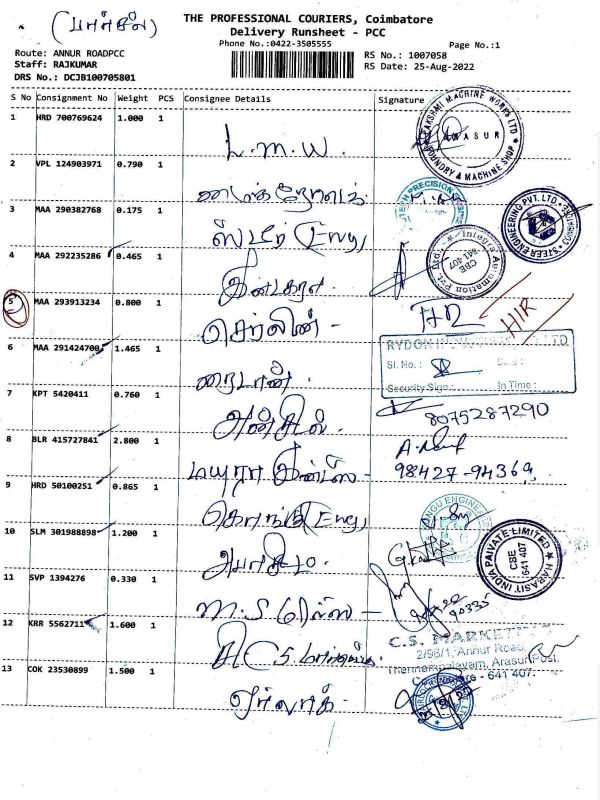 (பார்சல்)
THE PROFESSIONAL COURIERS, Coimbatore
Delivery Runsheet - PCC
Phone No.:0422-3505555
Page No.:1
Route: ANNUR ROADPCC
RS No.: 1007058
Staff: RAJKUMAR
RS Date: 25-Aug-2022
DRS No.: DCJB100705801
S No Consignment No Weight PCS Consignee Details Signature
1 HRD 700769624 1.000 1
L.M.W.
LAKSHMI MACHINE WORKS LTD
ARASUR
FOUNDRY & MACHINE SHOP
2 VPL 124903971 0.790 1
PRECISION
3 MAA 290382768 0.175 1
ஸ்டீர் Eng
STEER ENGINEERING PVT. LTD.
4 MAA 292235286 0.465 1
Integra Automation Pvt. Ltd.
CBE
641 407
5 MAA 293913234 0.800 1
செர்லின் -
HIR
6 MAA 291424700 1.465 1
ரைடான்.
RYDON LTD
Sl. No.: Date:
Security Sign.: In Time:
7 KPT 5420411 0.760 1
அன்சில்
8075287290
8 BLR 415727841 2.800 1
மயுரா இண்டஸ் -
98427-94369
9 HRD 50100251 0.865 1
கொங்கு Eng
ENGINEER
10 SLM 301988898 1.200 1
HARASIT INDIA PAIVATE LIMITED
CBE
641 407
11 SVP 1394276 0.330 1
M.S மில்ஸ் -
90335
12 KRR 5562711 1.600 1
C.S. MARKETI
2/96/1, Annur Road,
Thennampalayam, Arasur Post,
- 641 407.
13 COK 23530899 1.500 1
ஏர்லாக்.